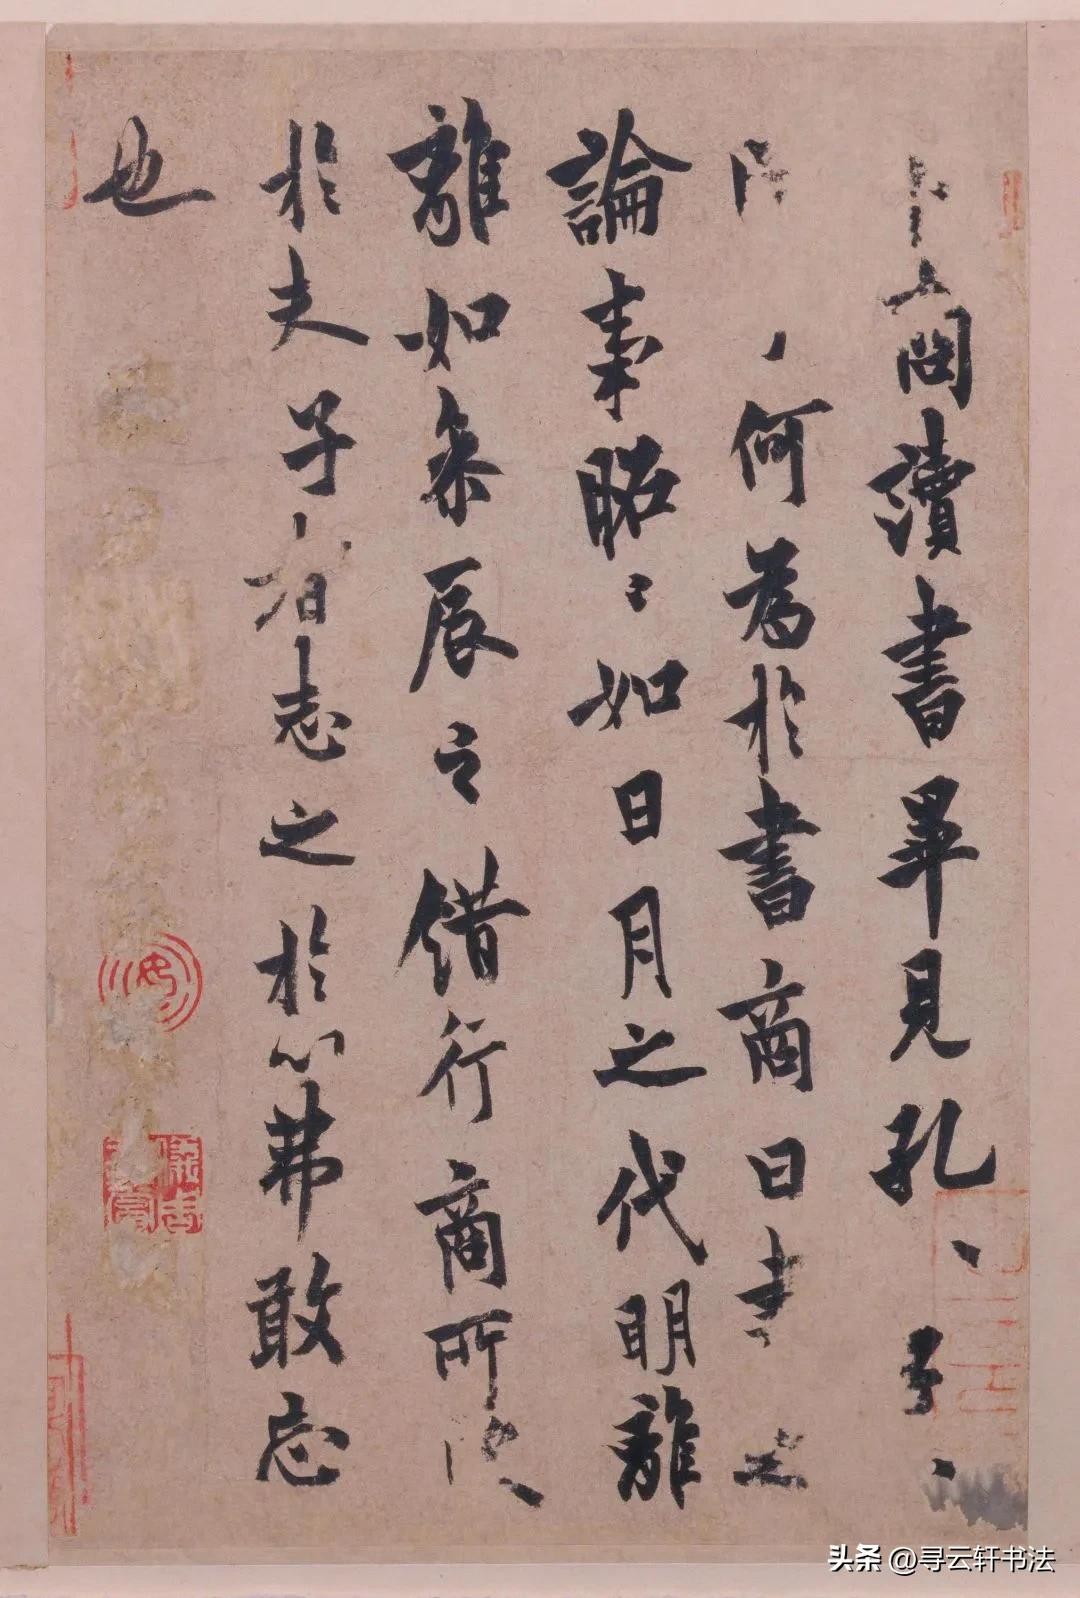 卜商讀書畢見孔〻子〻
何為於書商曰書之
論事昭〻如日月之代明離
離如參辰之錯行商所
於夫子者志之於心弗敢忘
也
头条 @寻云轩书法